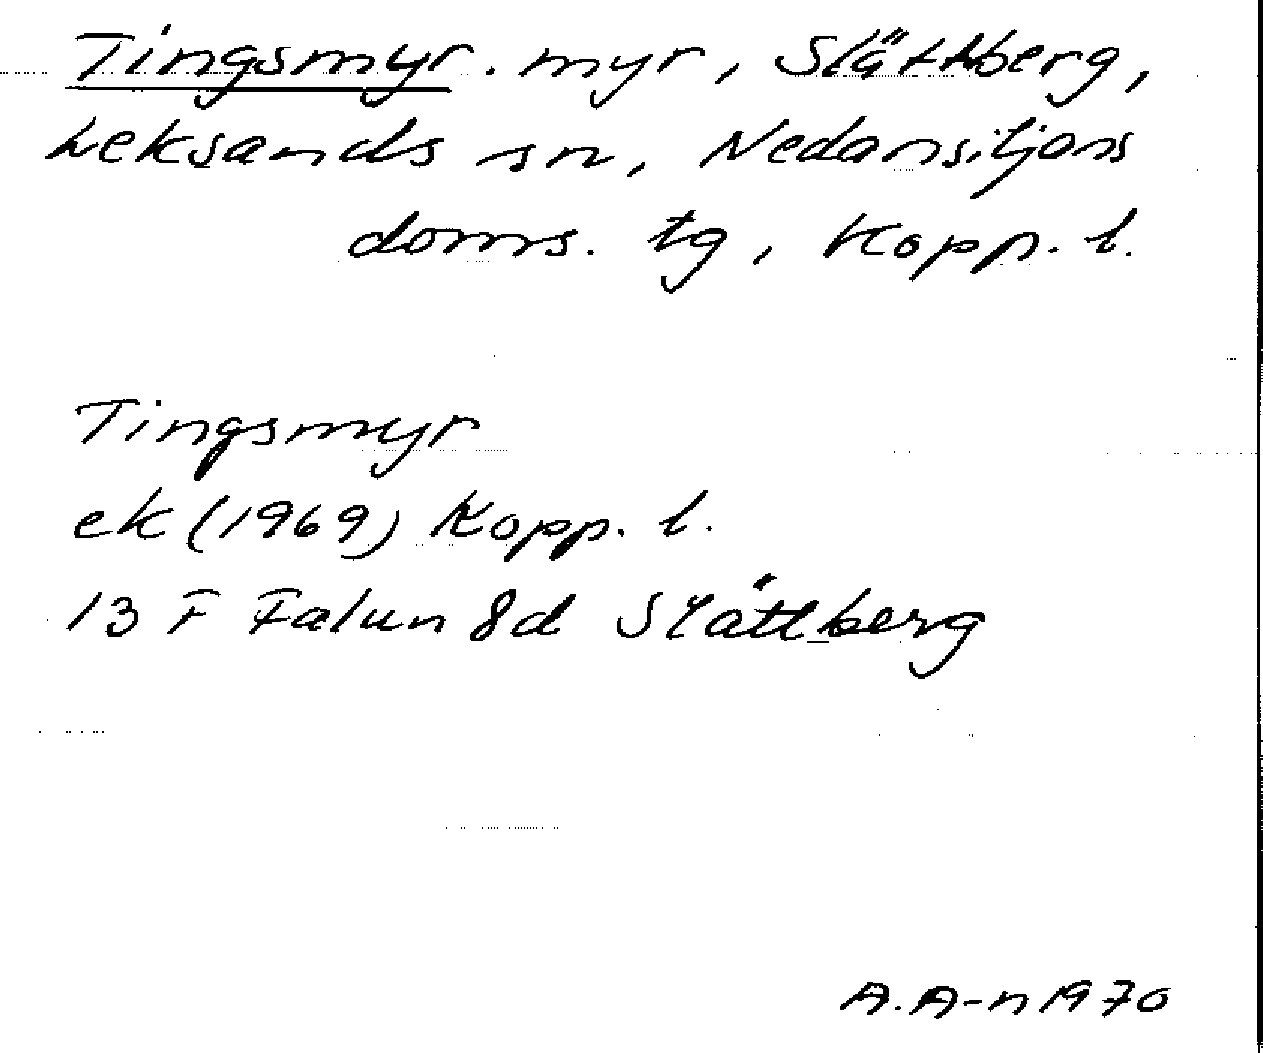 Tingsmyr. myr, Slättberg,
Leksands sn, Nedansiljans
doms. tg, Kopp. l.
Tingsmyr
ek (1969) Kopp. l.
13 F Falun 8d Slättberg
A.A-n 1970